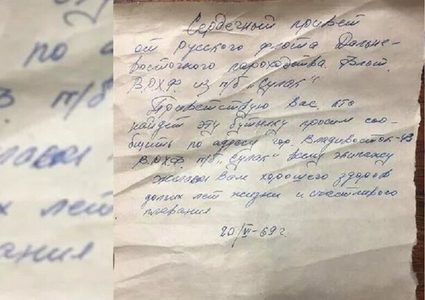 Сердечный привет
от русского флота Дальне-
восточного пароходства. Флот
ВРХФ из п/б "Сулак"
Приветствую Вас, кто
найдет эту бутылку просим соо-
бщить по адресу гор. Владивосток-43
ВРХФ п/б "Сулак" всему экипажу
желаем Вам хорошего здоров
долгих лет жизни и счастливого
плавания
20/VI-69 г